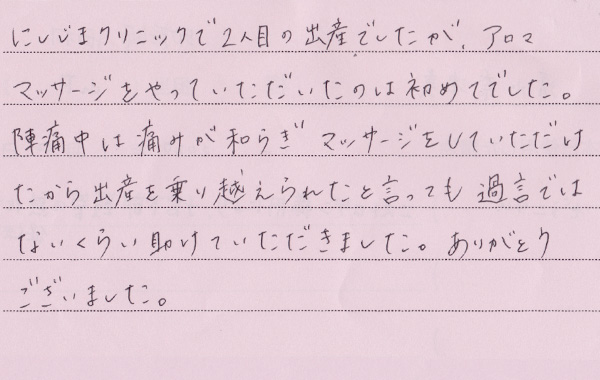 にしじまクリニックで2人目の出産でしたが、アロマ
マッサージをやっていただいたのは初めてでした。
陣痛中は痛みが和らぎマッサージをしていただけ
たから出産を乗り越えられたと言っても過言では
ないくらい助けていただきました。ありがとう
ございました。